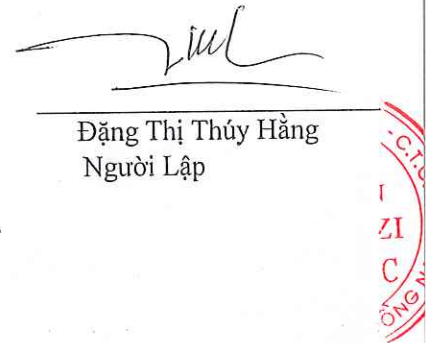 Đặng Thị Thúy Hằng
Người Lập
C.T.
ZI
C